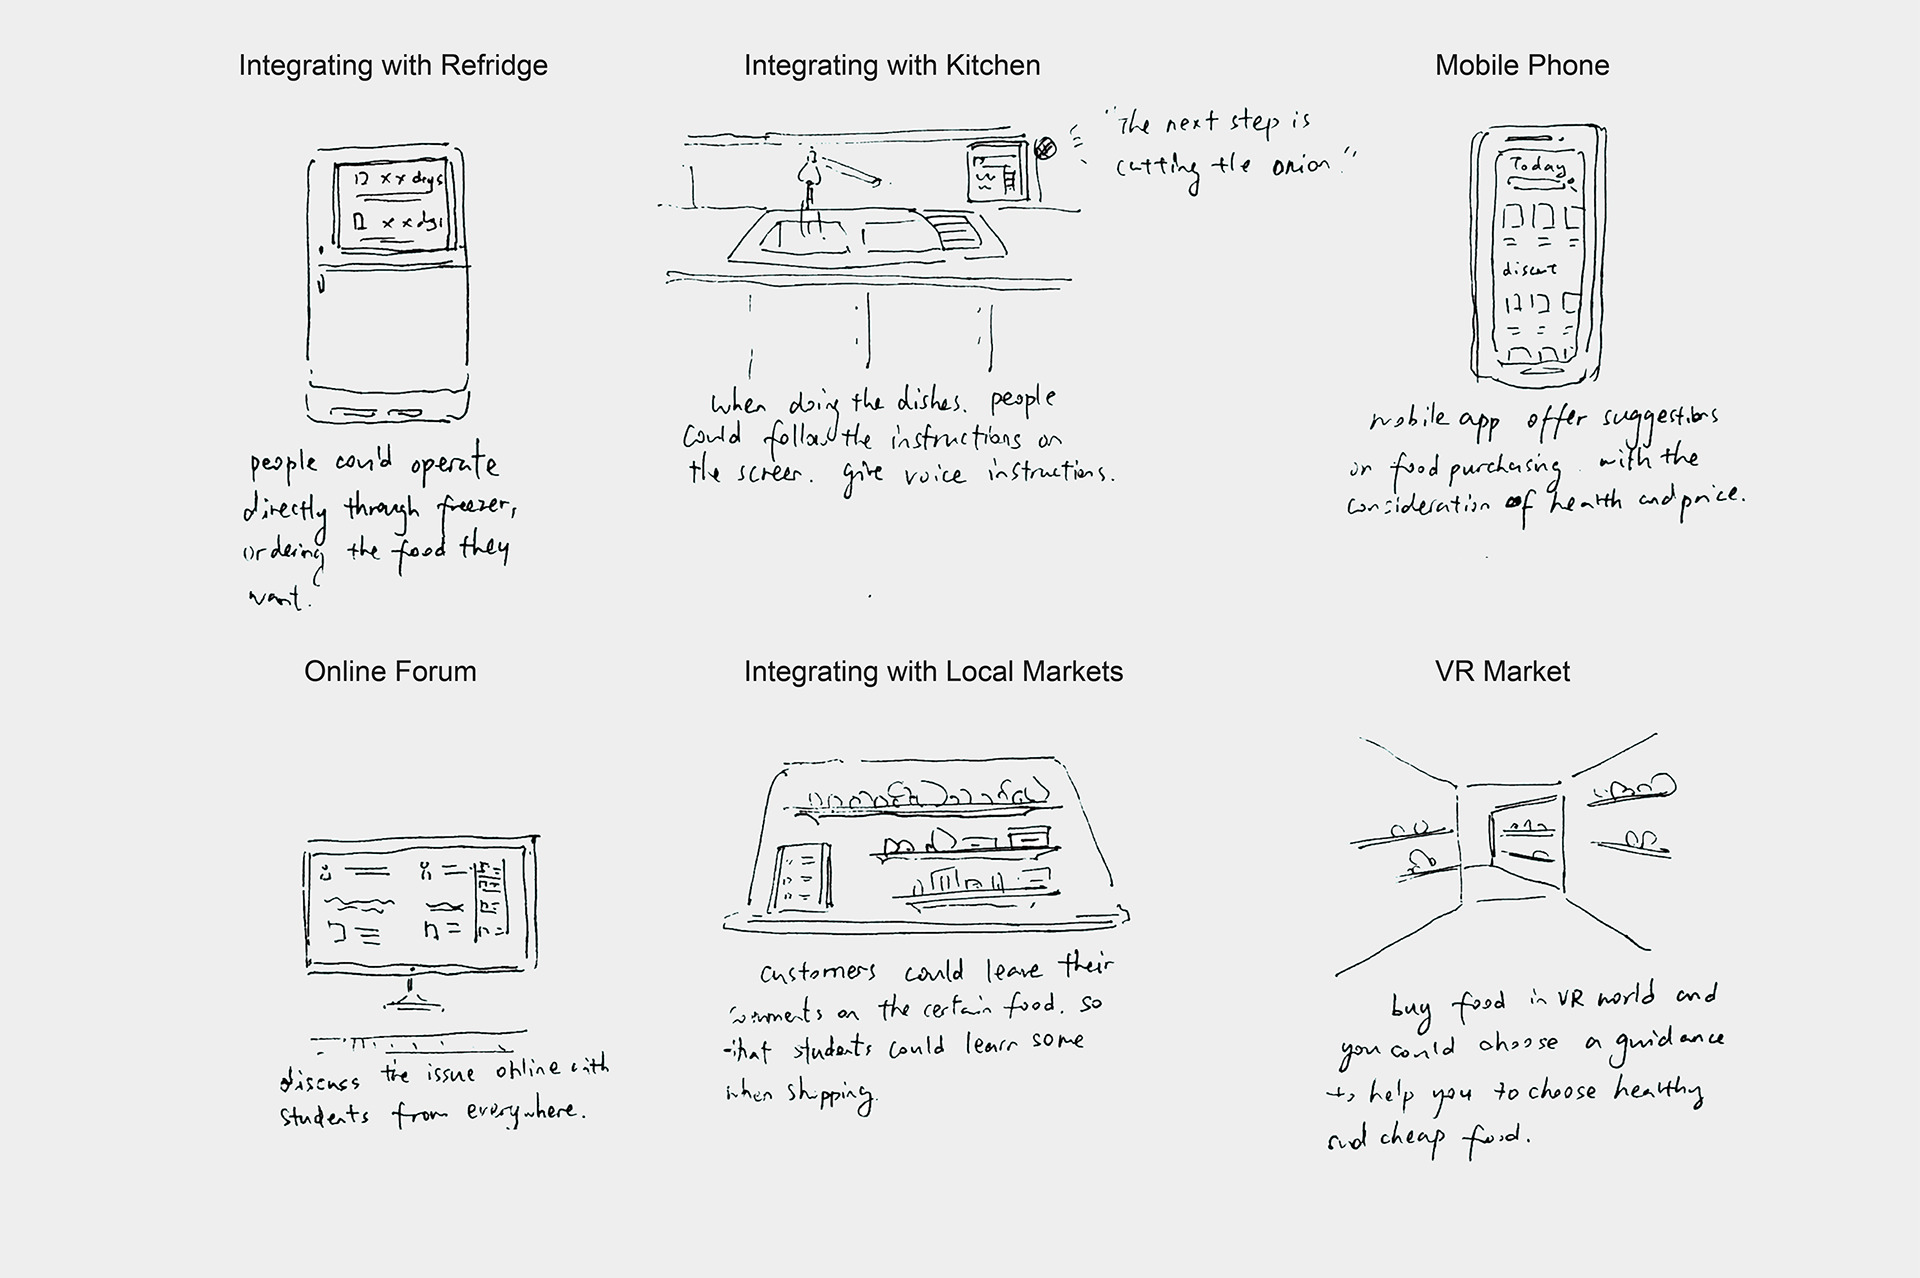 Integrating with Refridge
xx days
xx days
people could operate
directly through freezer,
ordering the food they
want.
Integrating with Kitchen
"The next step is
cutting the onion."
when doing the dishes. people
could follow the instructions on
the screen. give voice instructions.
Mobile Phone
Today
mobile app offer suggestions
on food purchasing with the
consideration of health and price.
Online Forum
discuss the issue online with
students from everywhere.
Integrating with Local Markets
customers could leave their
comments on the certain food. so
that students could learn some
when shipping.
VR Market
buy food in VR world and
you could choose a guidance
to help you to choose healthy
and cheap food.